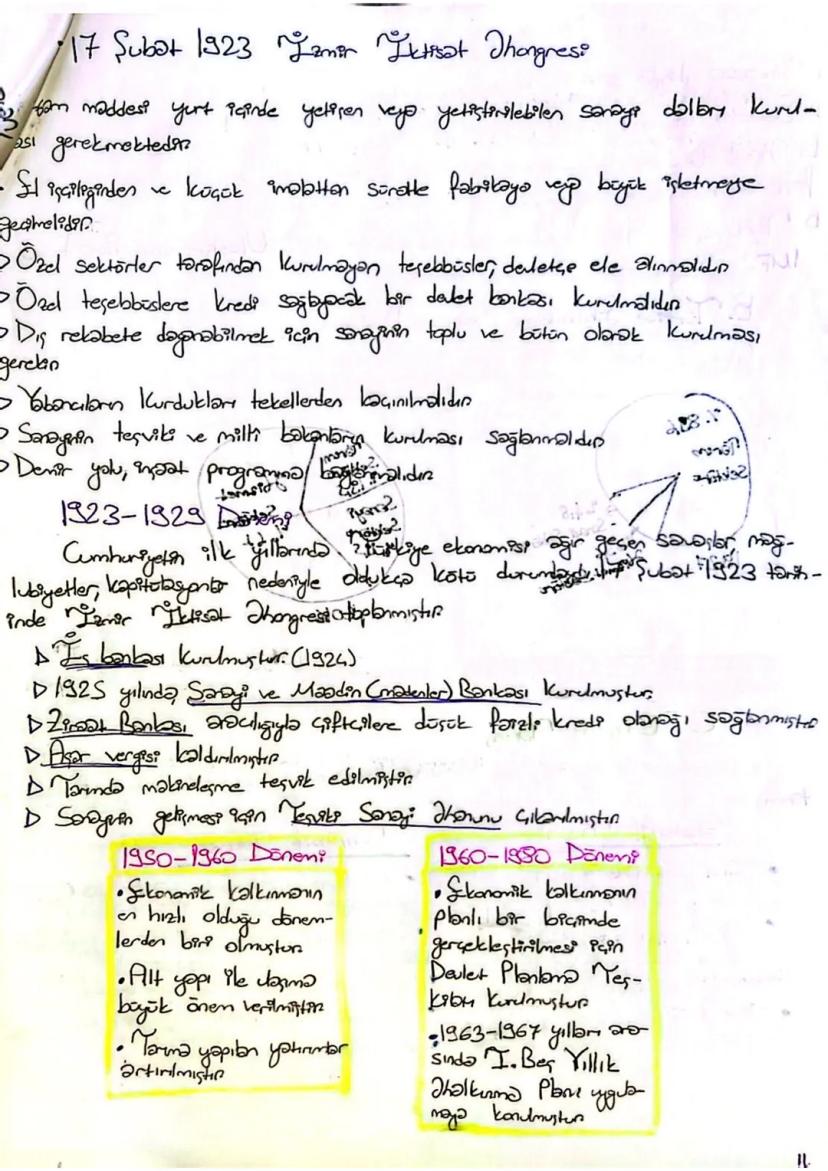 • 17 Şubat 1923 İzmir İktisat Kongresi
ham maddesi yurt içinde yetişen veya yetiştirilebilen sanayi dalları kurul-
ması gerekmektedir
El işçiliğinden ve küçük imalattan süratle fabrikaya veya büyük işletmeye
geçilmelidir.
▷ Özel sektörler tarafından kurulmayan teşebbüsler, devletçe ele alınmalıdır
▷ Özel teşebbüslere kredi sağlayacak bir devlet bankası kurulmalıdır
▷ Dış rekabete dayanabilmek için sanayinin toplu ve bütün olarak kurulması
gerekir
▷ Yabancıların kurdukları tekellerden kaçınılmalıdır
▷ Sanayinin teşviki ve milli bankaların kurulması sağlanmalıdır
▷ Demir yolu, inşaat programına bağlanmalıdır
1923-1929 Dönemi
Cumhuriyetin ilk yıllarında, Türkiye ekonomisi ağır geçen savaşlar, mağ-
lubiyetler, kapitülasyonlar nedeniyle oldukça kötü durumdaydı. Şubat 1923 tarih-
inde İzmir İktisat Kongresi toplanmıştır
▷ İş bankası kurulmuştur. (1924)
▷ 1925 yılında, Sanayi ve Maadin (madenler) Bankası kurulmuştur.
▷ Ziraat Bankası aracılığıyla çiftçilere düşük faizli kredi olanağı sağlanmıştır
▷ Aşar vergisi kaldırılmıştır
▷ Tarımda makineleşme teşvik edilmiştir
▷ Sanayinin gelişmesi için Teşviki Sanayi Kanunu çıkarılmıştır
1950-1960 Dönemi
• Ekonomik kalkınmanın
en hızlı olduğu dönem-
lerden biri olmuştur
• Alt yapı ile ulaşıma
büyük önem verilmiştir
• Tarıma yapılan yatırımlar
artırılmıştır
1960-1980 Dönemi
• Ekonomik kalkınmanın
planlı bir biçimde
gerçekleştirilmesi için
Devlet Planlama Teş-
kilatı kurulmuştur
• 1963-1967 yılları ara-
sında I. Beş Yıllık
Kalkınma Planı uygula-
maya konulmuştur
11